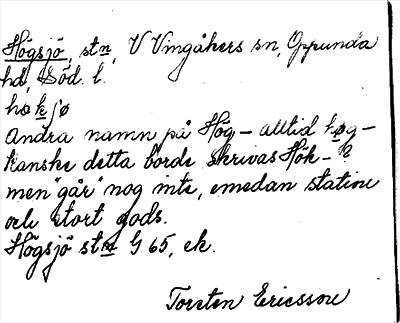 Högsjö, stn, V Vingåkers sn, Oppunda
hd, Söd. l.
høkſø
Andra namn på Hög- alltid høg-
Kanske detta borde skrivas Hök- ?
men "går" nog inte, emedan station
och stort gods.
Högsjö stn G 65, ek.
Torsten Ericsson